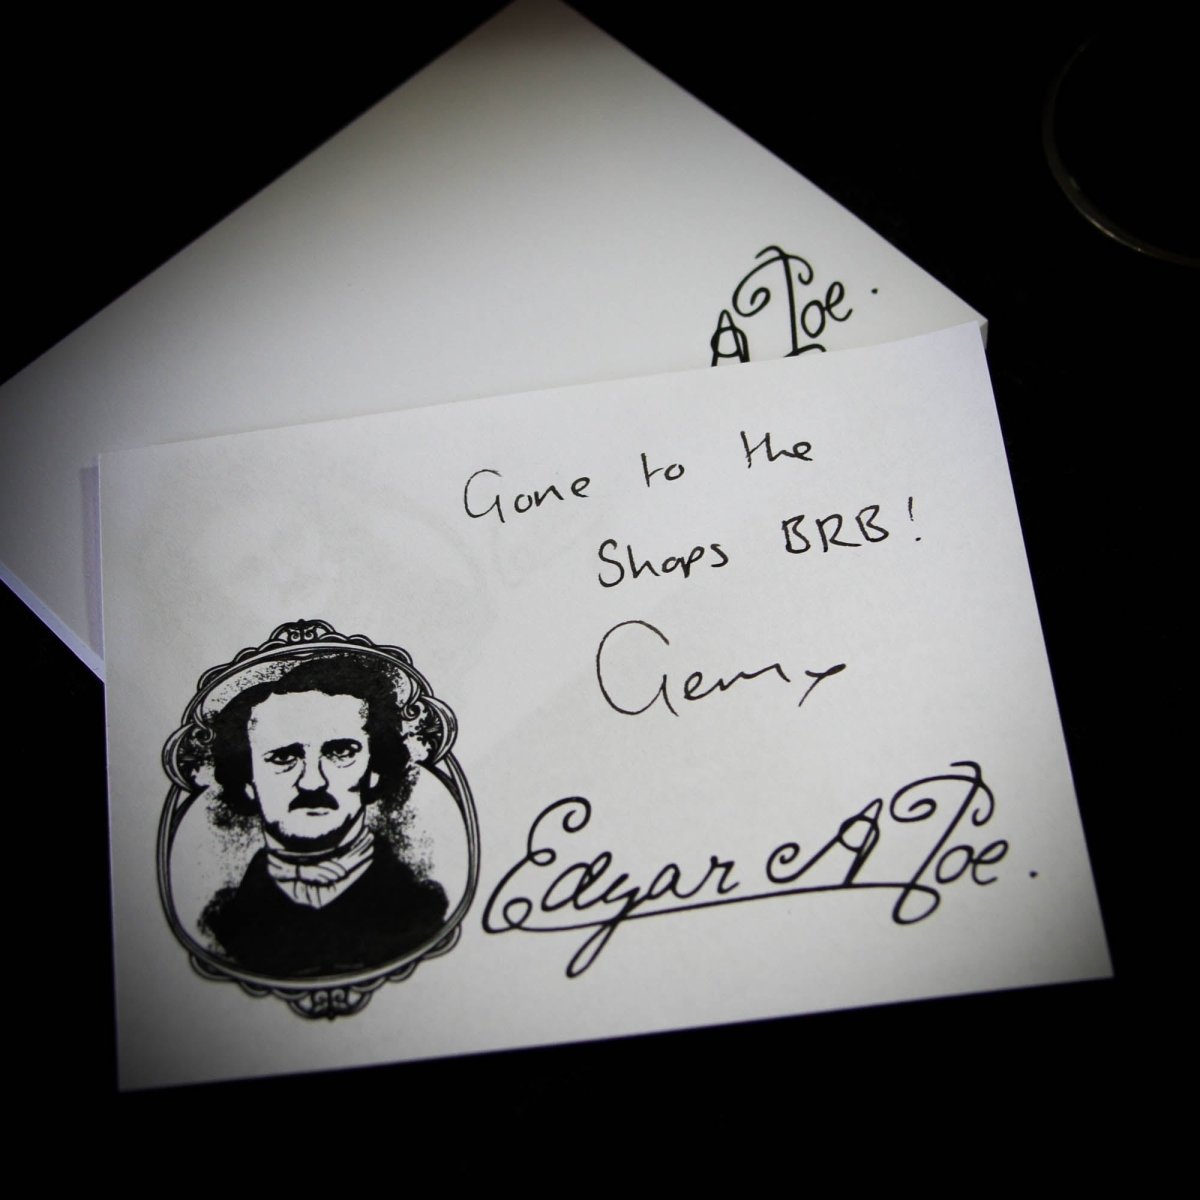 A Poe.
Gone to the
Shops BRB!
Gem x
Edgar A Poe.